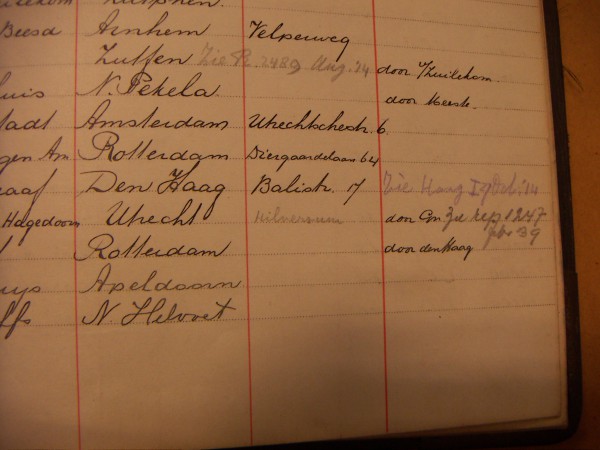 Zutphen.
Beesd Arnhem Velperweg
Zutfen Zie R. 2489 Aug. '14 door Zuilekom.
uis N. Pekela. door Meeste.
tadt Amsterdam Utrechtschestr. 6.
gen Am Rotterdam Diergaardelaan 64
raaf Den Haag Balistr. 7 Zie Haag I 9 Oct. '14
Hagedoorn Utrecht Hilversum door Gm Zie rep 1247
febr 39
Rotterdam door den Haag
uys Apeldoorn
ffs N. Helvoet